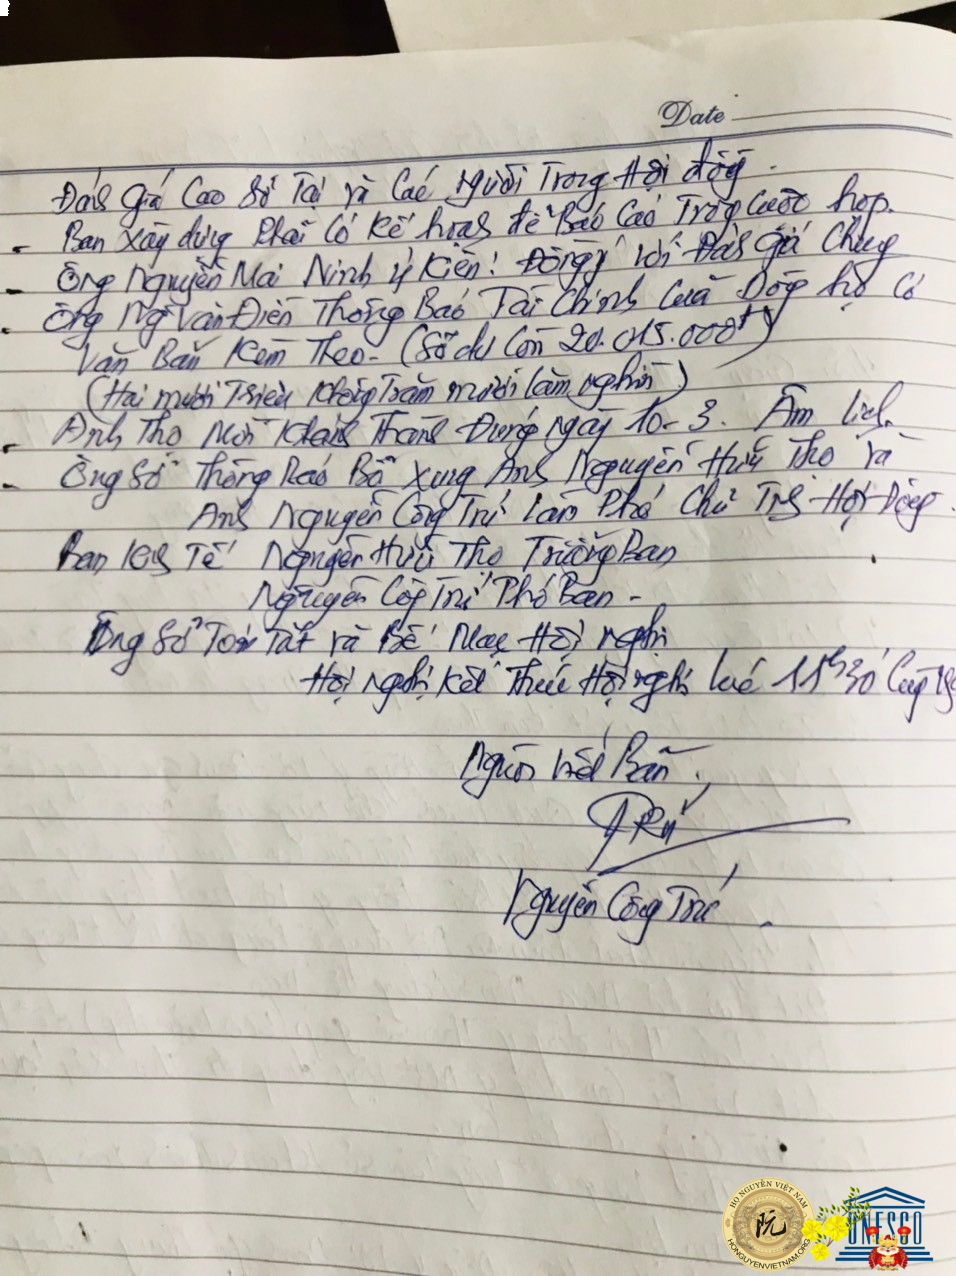 Date
Đánh giá Cao Sở Tại và Các người Trong Hội đồng.
- Ban xây dựng Phải Có Kế hoạch để Báo Cáo Trong Cuộc họp.
- Ông Nguyễn Mai Ninh ý Kiến: Đồng ý với Đánh giá Chung
- Ông Ng Văn Điền Thông Báo Tài Chính Của Dòng họ Có
Văn Bản Kèm Theo - (Số dư Còn 20.015.000đ)
(Hai mươi Triệu Không Trăm mười lăm nghìn)
- Anh Thọ Mời Khánh Thành Đúng ngày 10-3. Âm Lịch.
- Ông Sở Thông Báo Bổ Xung Anh Nguyễn Hữu Thọ và
Anh Nguyễn Công Trứ Làm Phó Chủ Tịch Hội Đồng.
Ban Tế Nguyễn Hữu Thọ Trưởng Ban
Nguyễn Công Trứ Phó Ban -
Ông Sở Tóm Tắt và Bế Mạc Hội nghị
Hội nghị Kết Thúc Hội nghị lúc 11h30 Cùng
Người viết Bản.
TRứ
Nguyễn Công Trứ.
HỌ NGUYỄN VIỆT NAM
阮
HONGUYENVIETNAM.ORG
UNESCO